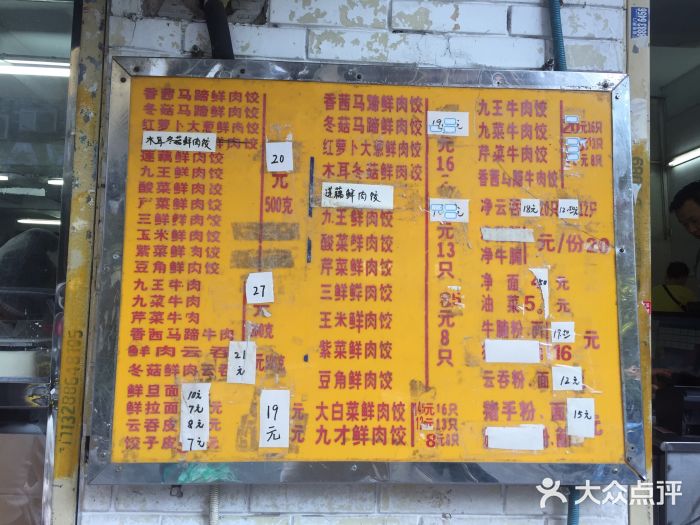 香茜马蹄鲜肉饺
冬菇马蹄鲜肉饺
红萝卜大葱鲜肉饺
木耳冬菇鲜肉饺
莲藕鲜肉饺
九王鲜肉饺
酸菜鲜肉饺
芹菜鲜肉饺
三鲜鲜肉饺
玉米鲜肉饺
紫菜鲜肉饺
豆角鲜肉饺
20
元
500克
九王牛肉
九菜牛肉
芹菜牛肉
香茜马蹄牛肉
27
鲜肉云吞
冬菇鲜肉云吞
21元
鲜旦面 10元
鲜拉面 7元
云吞皮 8元
饺子皮 7元
19元
香茜马蹄鲜肉饺
冬菇马蹄鲜肉饺
红萝卜大葱鲜肉饺
木耳冬菇鲜肉饺
莲藕鲜肉饺
九王鲜肉饺
酸菜鲜肉饺
芹菜鲜肉饺
三鲜鲜肉饺
玉米鲜肉饺
紫菜鲜肉饺
豆角鲜肉饺
元
16
元
13
只
元
8
只
大白菜鲜肉饺
九才鲜肉饺
16只
13只
8元8只
九王牛肉饺
九菜牛肉饺
芹菜牛肉饺
香茜马蹄牛肉饺
20元16只
8只
净云吞 18元 20只 12只
净牛腩 元/份20
净面 元
油菜 5。
牛腩粉.面
16
元
云吞粉.面 12元
猪手粉.面 15元
17132886483195
3883 6456
大众点评